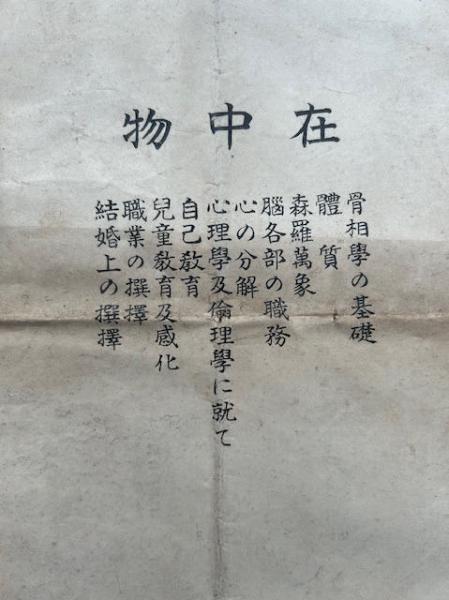 在中物
骨相學の基礎
體質
森羅萬象
腦各部の職務
心の分解
心理學及倫理學に就て
自己敎育
兒童敎育及感化
職業の撰擇
結婚上の撰擇